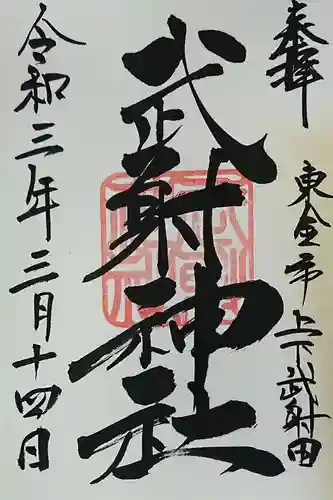 奉拝
東金市上下武射田
武射神社
令和三年三月十四日